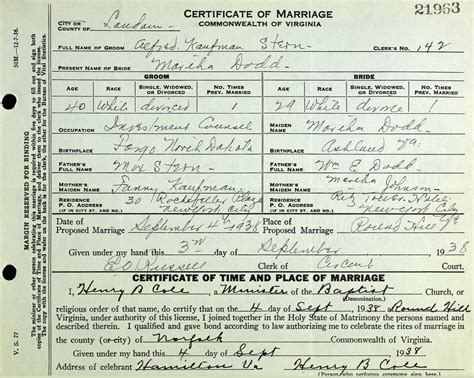 21963
CERTIFICATE OF MARRIAGE
COMMONWEALTH OF VIRGINIA
CITY OR COUNTY OF Loudoun
CLERK'S NO. 142
FULL NAME OF GROOM Alfred Kaufman Stern
PRESENT NAME OF BRIDE Martha Dodd
GROOM BRIDE
AGE RACE SINGLE, WIDOWED OR DIVORCED NO. TIMES PREV. MARRIED AGE RACE SINGLE, WIDOWED OR DIVORCED NO. TIMES PREV. MARRIED
40 White divorced 1 29 White divorce 1
OCCUPATION Investment Counsel MAIDEN NAME Martha Dodd
BIRTHPLACE Fargo North Dakota BIRTHPLACE Ashland Va.
FATHER'S FULL NAME Max Stern FATHER'S FULL NAME Wm E Dodd
MOTHER'S MAIDEN NAME Fanny Kaufman MOTHER'S MAIDEN NAME Martha Johnson
RESIDENCE P. O. ADDRESS (IF CITY ST. AND NO.) 30 Rockefeller Plaza New York City RESIDENCE P. O. ADDRESS (IF CITY ST. AND NO.) Ritz Tower Hotel New York City
Date of Proposed Marriage September 4th 1938 Place of Proposed Marriage Round Hill Va
Given under my hand this 3rd day of September 1938
EO Russell Clerk of Circuit Court.
CERTIFICATE OF TIME AND PLACE OF MARRIAGE
I, Henry B Cole, a Minister of the Baptist Church, or
(Denomination.)
religious order of that name, do certify that on the 4 day of Sept 1938 Round Hill
Virginia, under authority of this license, I joined together in the Holy State of Matrimony the persons
described. I qualified and gave bond according to law authorizing me to celebrate the rites of marriage in
the county (or city) of Norfolk Commonwealth of Virginia.
Given under my hand this 4 day of Sept 1938
Address of celebrant Hamilton Va Henry B Cole
(Person who performs ceremony sign here.)
MARGIN RESERVED FOR BINDING
50M—12-7-36.
V. S. 77